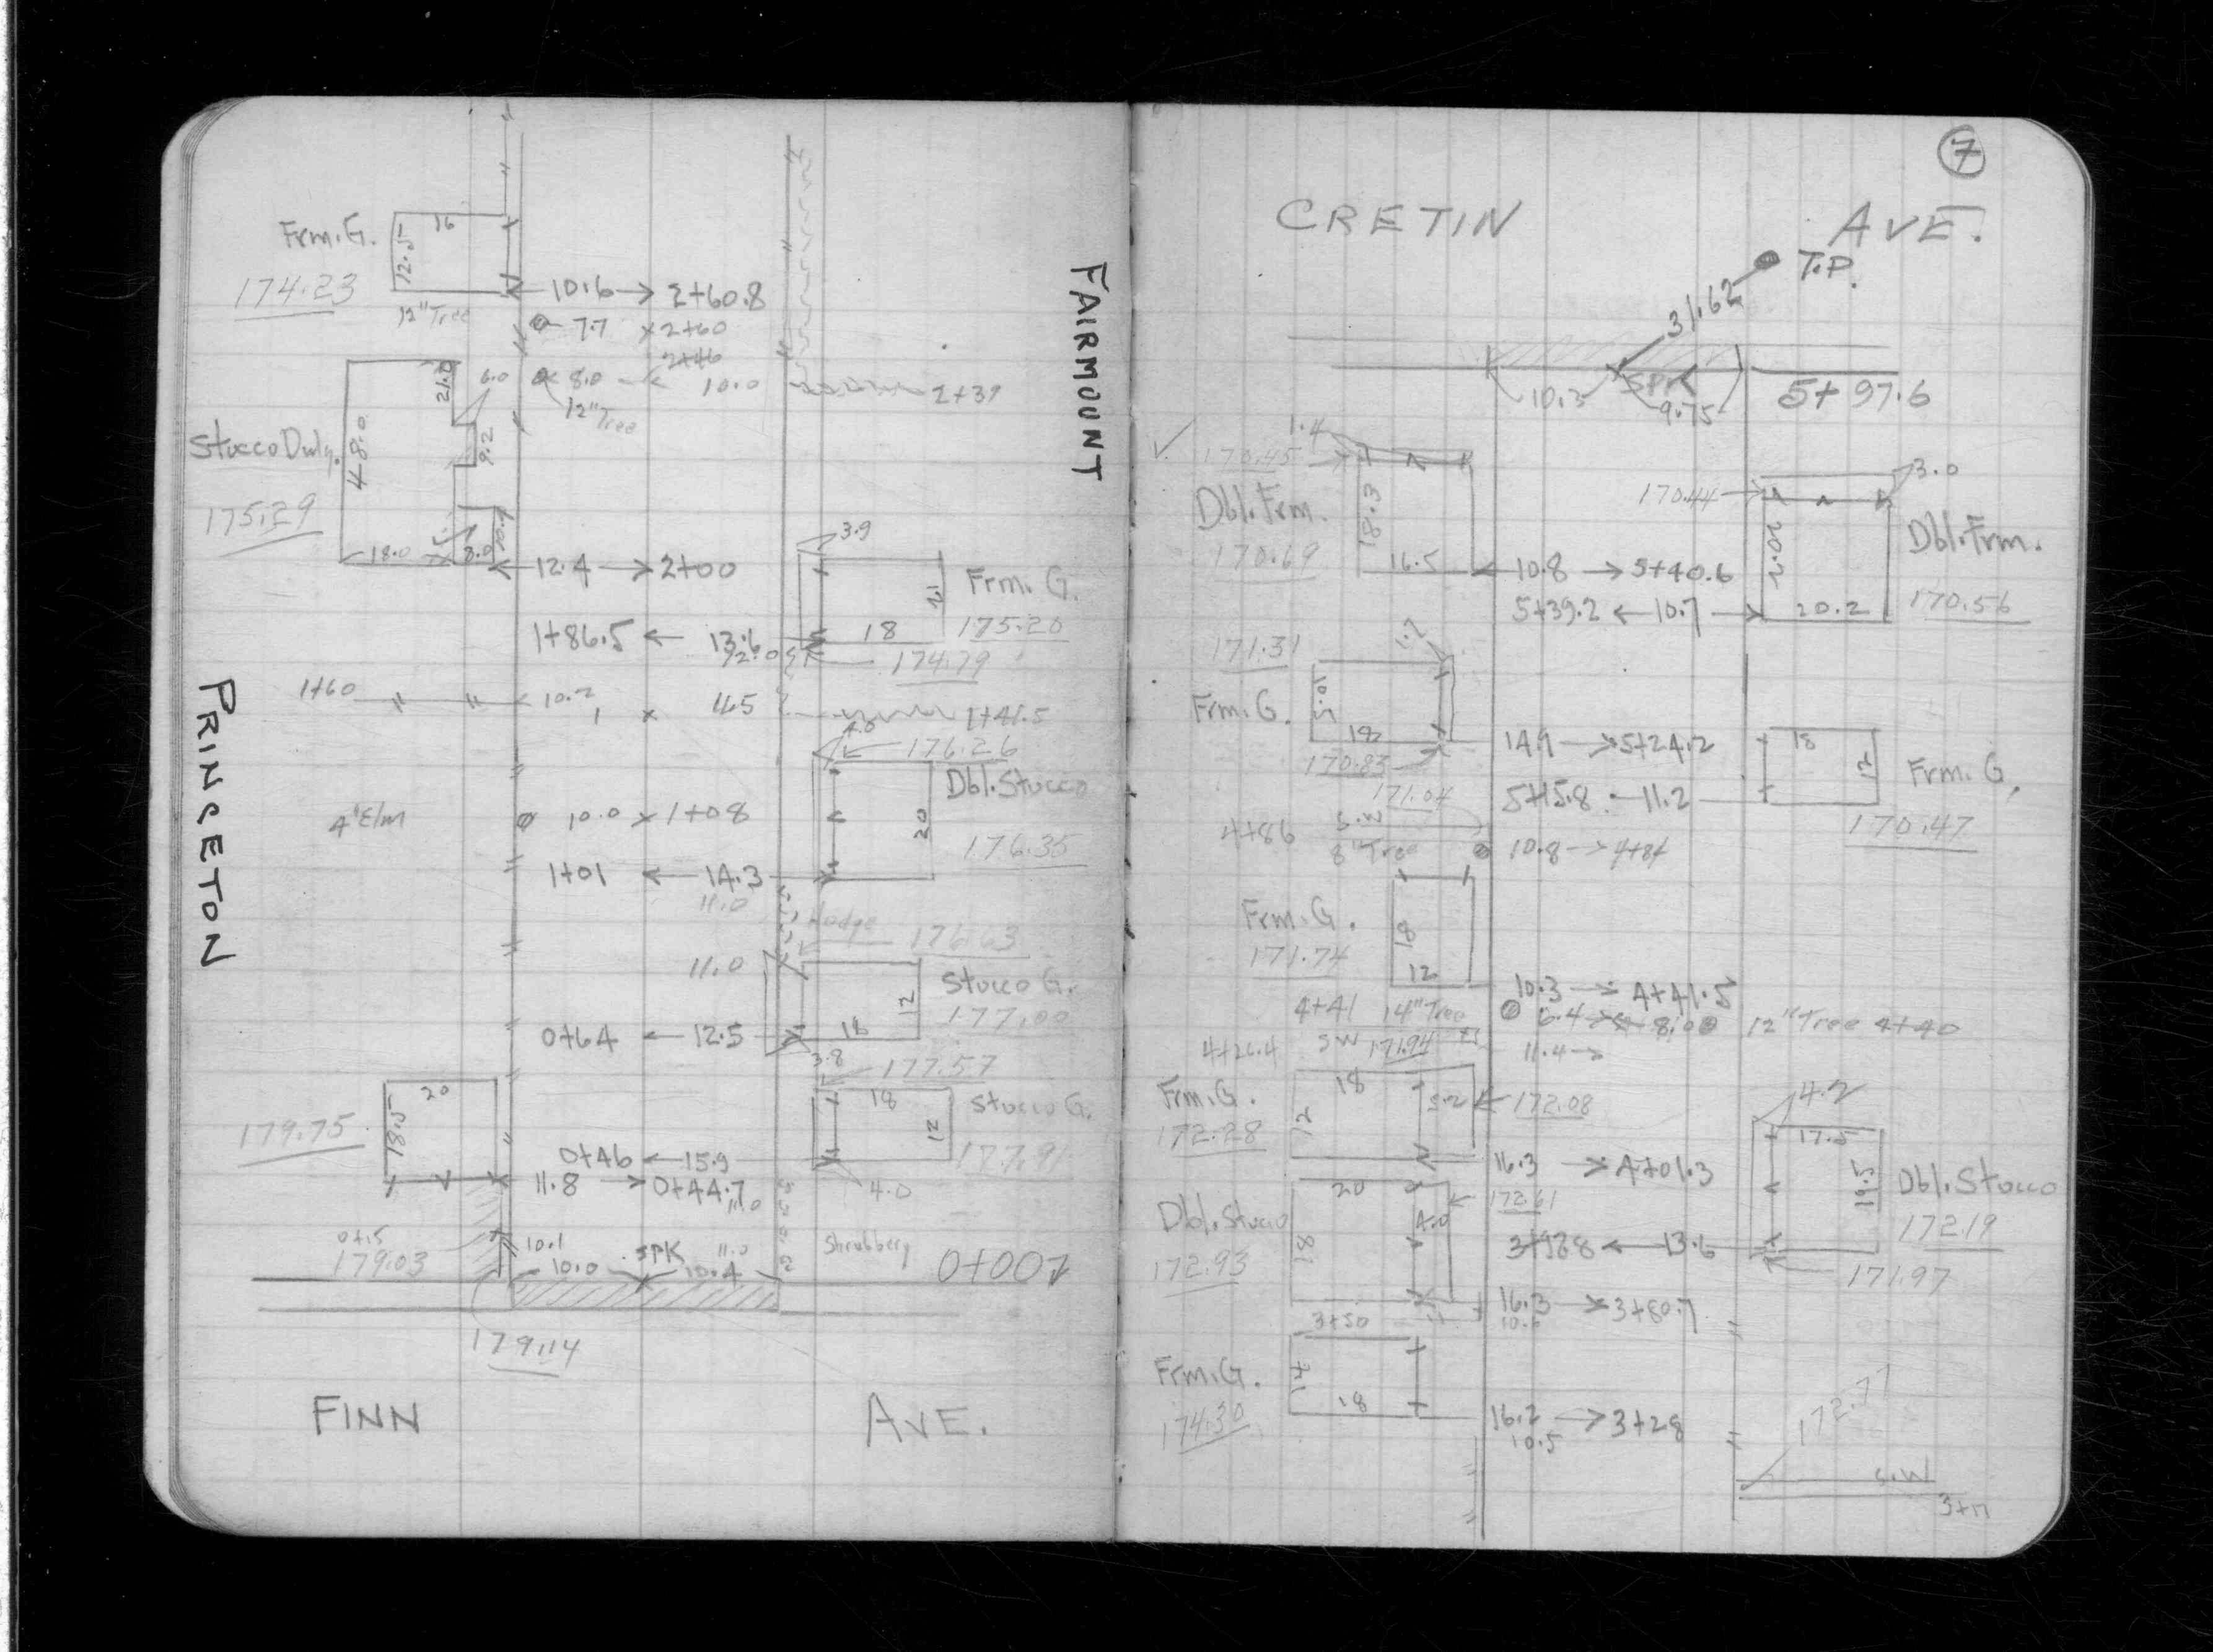 16
Frm. G.
12.5
174.23
10.6 → 2+60.8
12" Tree
7.7 × 2+60
2+46
21.0
6.0
8.0
10.0
2+39
12" Tree
Stucco Dwlg.
48.0
9.2
175.29
18.0
8.0
12.4 → 2+00
3.9
Frm. G.
18
175.20
1+86.5 ← 13.6
174.79
1+60
10.2
1+41.5
4.0
176.26
Dbl. Stucco
20
4" Elm
10.0 × 1+08
176.35
1+01 ← 14.3
11.0
Hedge
176.63
11.0
Stucco G.
12
18
177.00
0+64 ← 12.5
3.8
177.57
20
18
Stucco G.
12
179.75
18.5
177.91
0+46 ← 15.9
11.8 → 0+44.7
11.0
4.0
0+15
179.03
10.1
10.0
SPK
11.0
10.4
Shrubbery
0+00
179.14
FINN AVE.
PRINCETON
FAIRMOUNT
7
CRETIN AVE.
T.P.
31.62
10.3
SPK
9.75
5+97.6
1.4
170.45
3.0
170.44
Dbl. Frm.
18.3
170.69
20.2
Dbl. Frm.
16.5
10.8 → 5+40.6
5+39.2 ← 10.7
20.2
170.56
171.31
1.7
Frm. G.
10.5
18
14.9 → 5+24.2
18
12
Frm. G.
170.83
171.04
5+15.8 11.2
170.47
4+86
S.W
8" Tree
10.8 → 4+84
Frm. G.
18
171.74
12
10.3 → 4+41.5
4+41 14" Tree
6.4
8.0
12" Tree 4+40
4+26.4 SW 171.94
11.4
Frm. G.
18
12
5.2
172.08
172.28
4.2
17.5
16.3 → 4+01.3
19.5
Dbl. Stucco
20
172.61
Dbl. Stucco
18
4.0
172.19
3+98.8 ← 13.6
172.93
171.97
16.3 → 3+80.7
3+50
Frm. G.
18
174.30
16.2 → 3+28
10.5
172.77
S.W
3+17